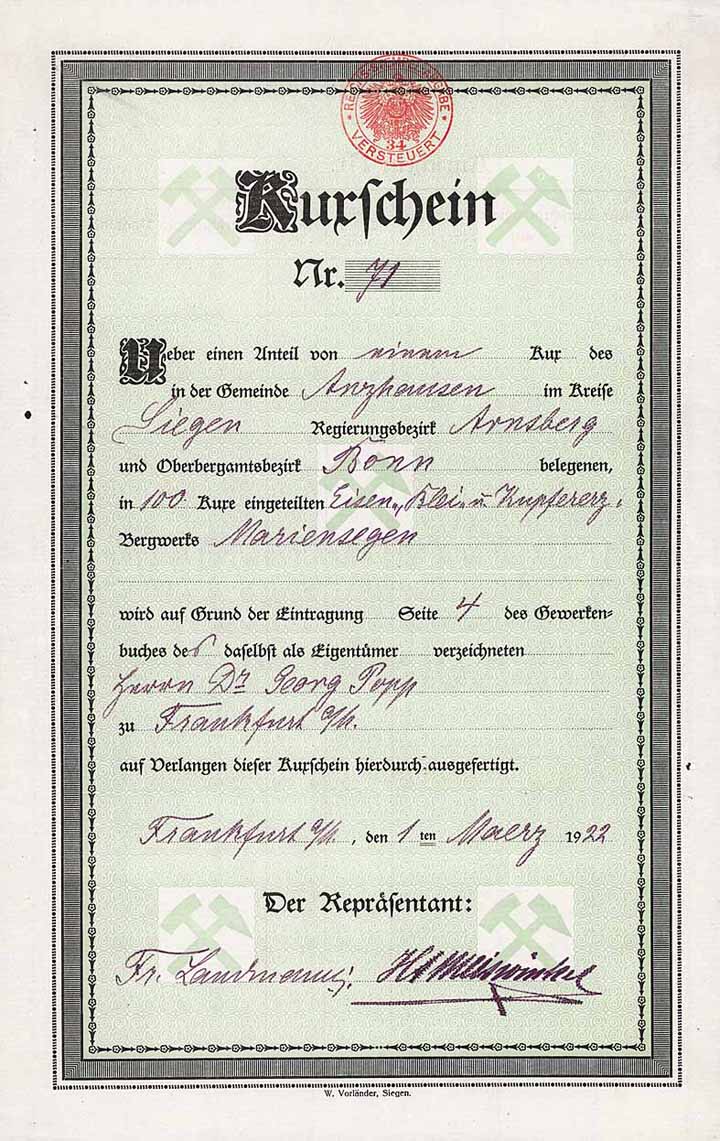 REICHSSTEMPELABGABE
34
VERSTEUERT
Kuxschein
Nr. 71
Ueber einen Anteil von einem Kux des
in der Gemeinde Anzhausen im Kreise
Siegen Regierungsbezirk Arnsberg
und Oberbergamtsbezirk Bonn belegenen,
in 100 Kuxe eingeteilten Eisen-, Blei- u. Kupfererz-
Bergwerks Mariensegen
wird auf Grund der Eintragung Seite 4 des Gewerken-
buches des daselbst als Eigentümer verzeichneten
Herrn Dr. Georg Popp
zu Frankfurt a/M.
auf Verlangen dieser Kuxschein hierdurch ausgefertigt.
Frankfurt a/M., den 1ten Maerz 1922
Der Repräsentant:
Fr. Landmann
W. Vorländer, Siegen.